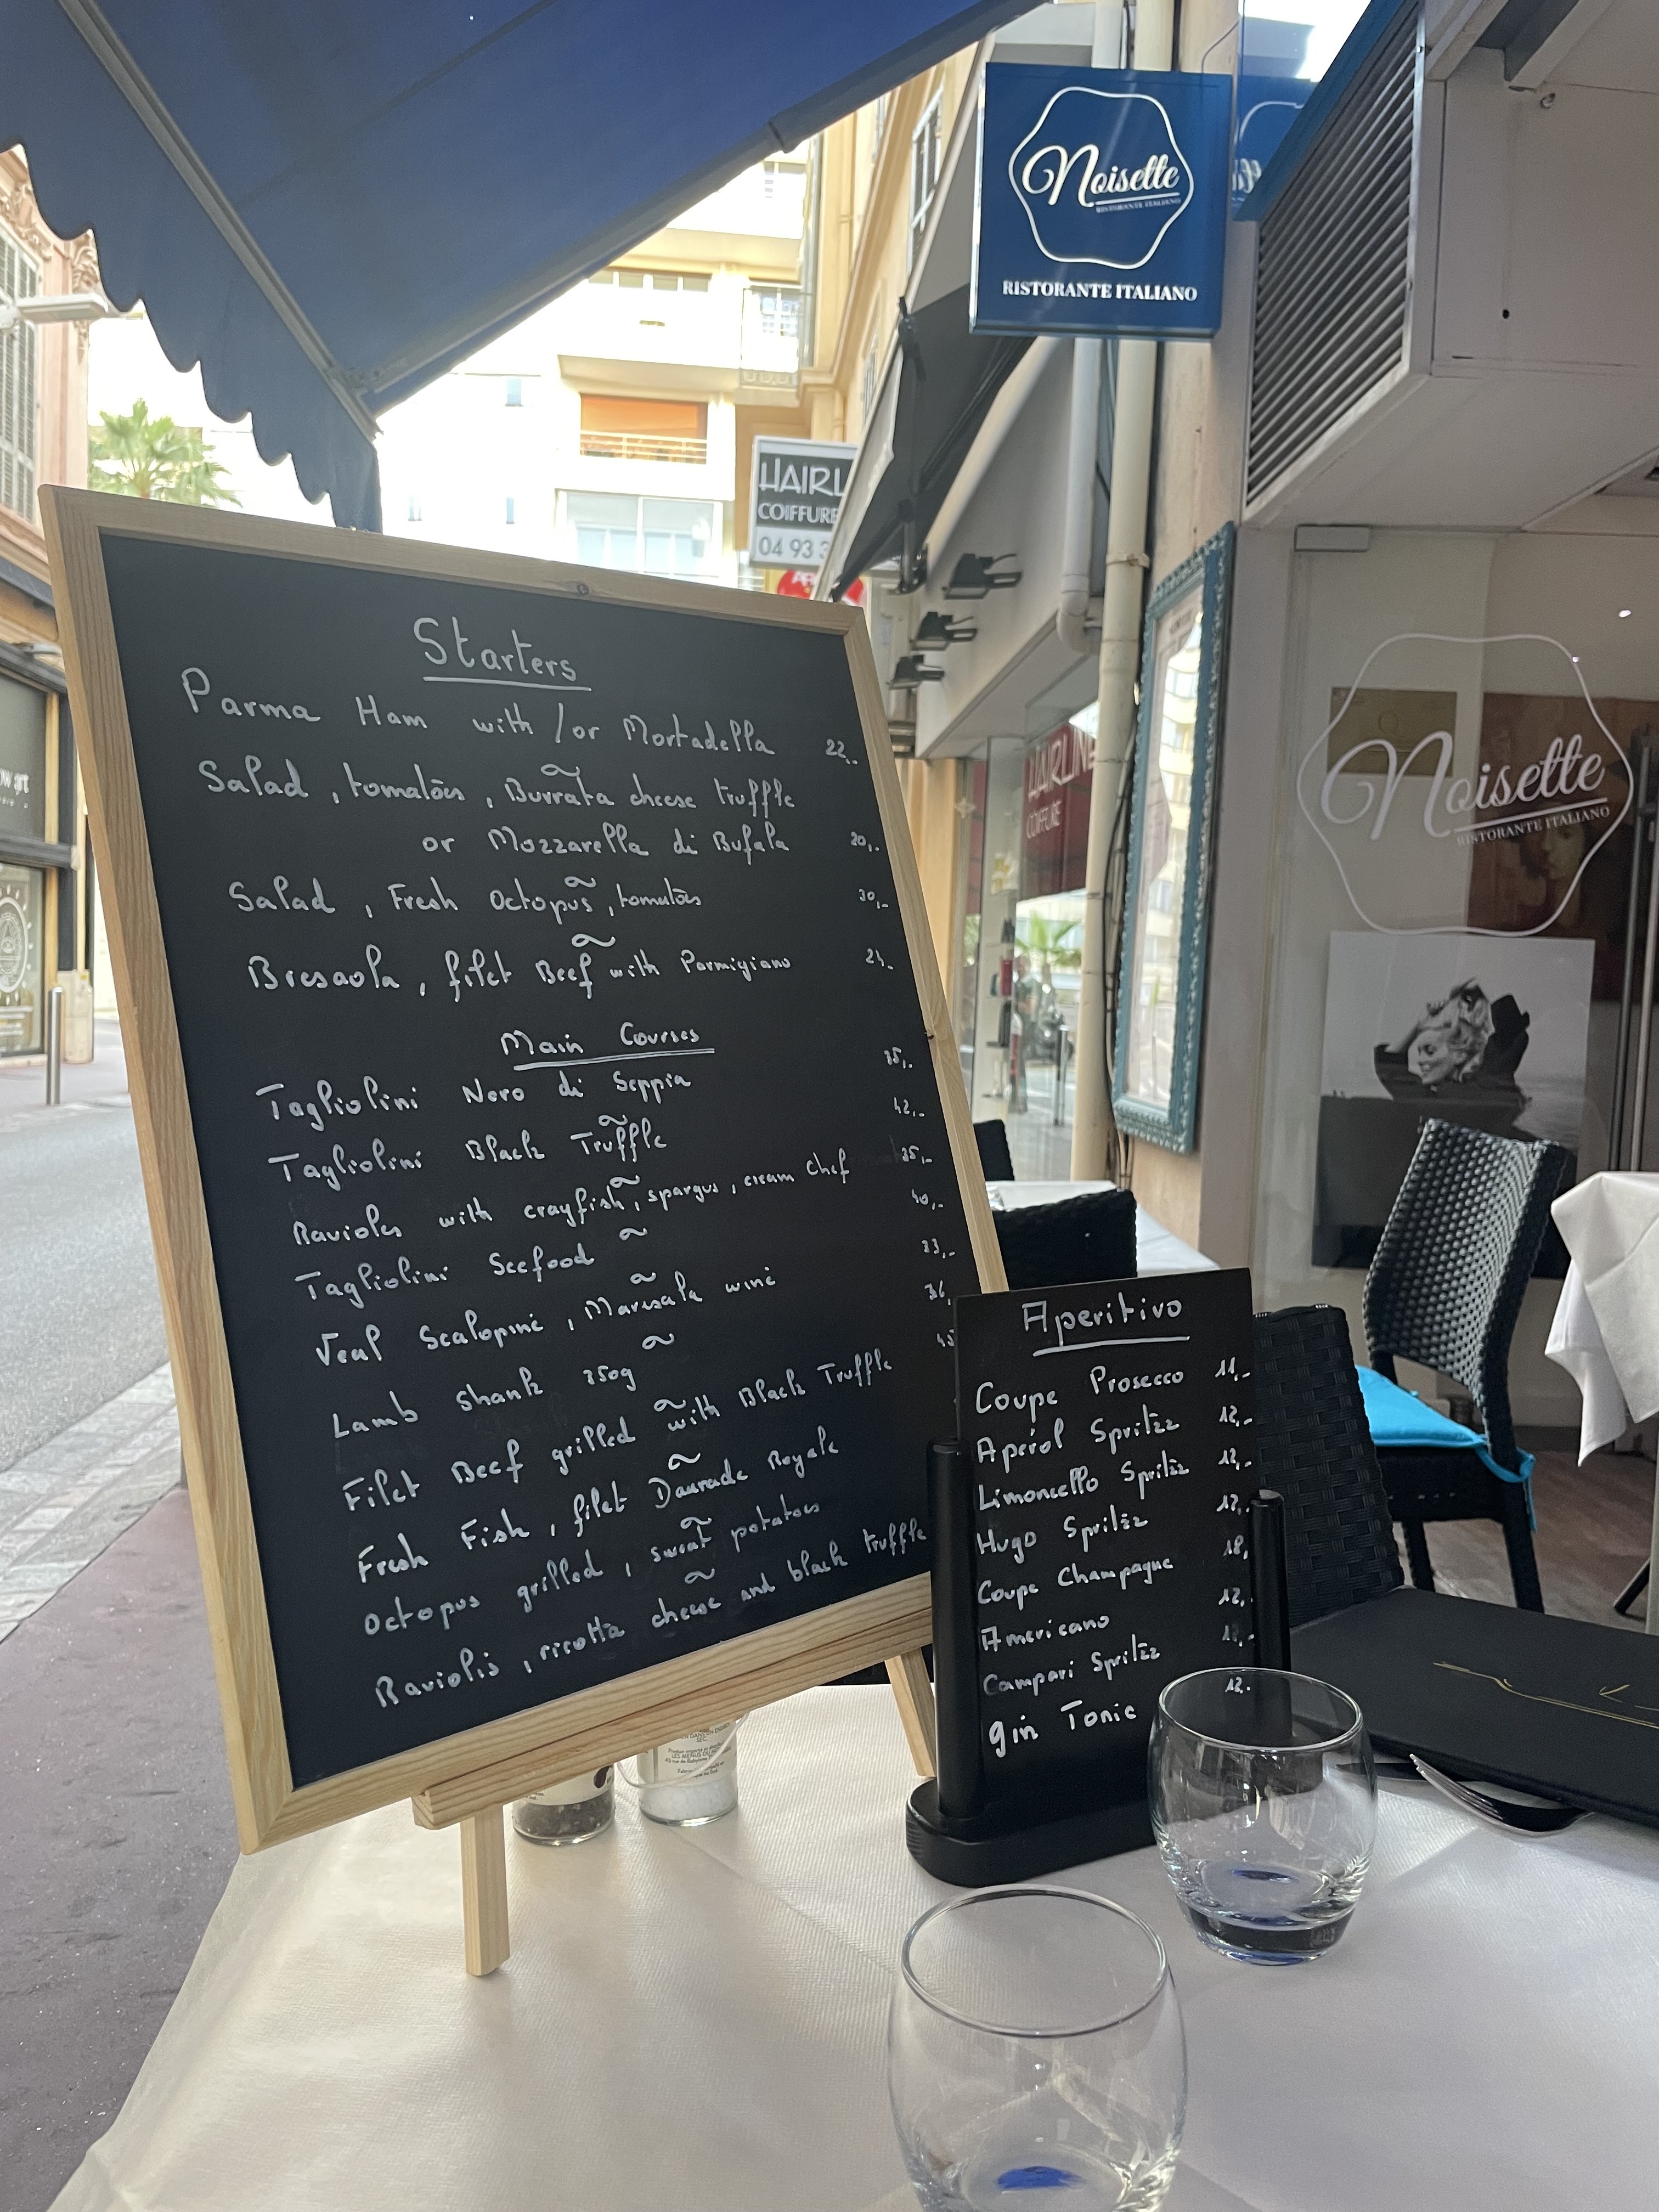 Noisette
RISTORANTE ITALIANO
RISTORANTE ITALIANO
HAIRL
COIFFURE
04 93 3
Starters
Parma Ham with /or Mortadella 22,-
Salad, tomatoes, Burrata cheese truffle
or Mozzarella di Bufala 20,-
Salad, Fresh Octopus, tomatoes 30,-
Bresaola, filet Beef with Parmigiano
Main Courses
Tagliolini Nero di Seppia 35,-
Tagliolini Black Truffle 42,-
Ravioles with crayfish, spargus, cream chef 35,-
Tagliolini Seefood 40,-
Veal Scalopine, Maresala wine 33,-
Lamb Shank 350g
Filet Beef grilled with Black Truffle
Fresh Fish, filet Daurade Royale
Octopus grilled, sweat potatoes
Raviolis, ricotta cheese and black truffle
Aperitivo
Coupe Prosecco 11,-
Apérol Spritzz 12,-
Limoncello Spritzz 12,-
Hugo Spritzz 12,-
Coupe Champagne 18,
Americano 12,-
Campari Spritzz 12,-
gin Tonic 12.-
HAIRLINE
COIFFURE
Noisette
RISTORANTE ITALIANO